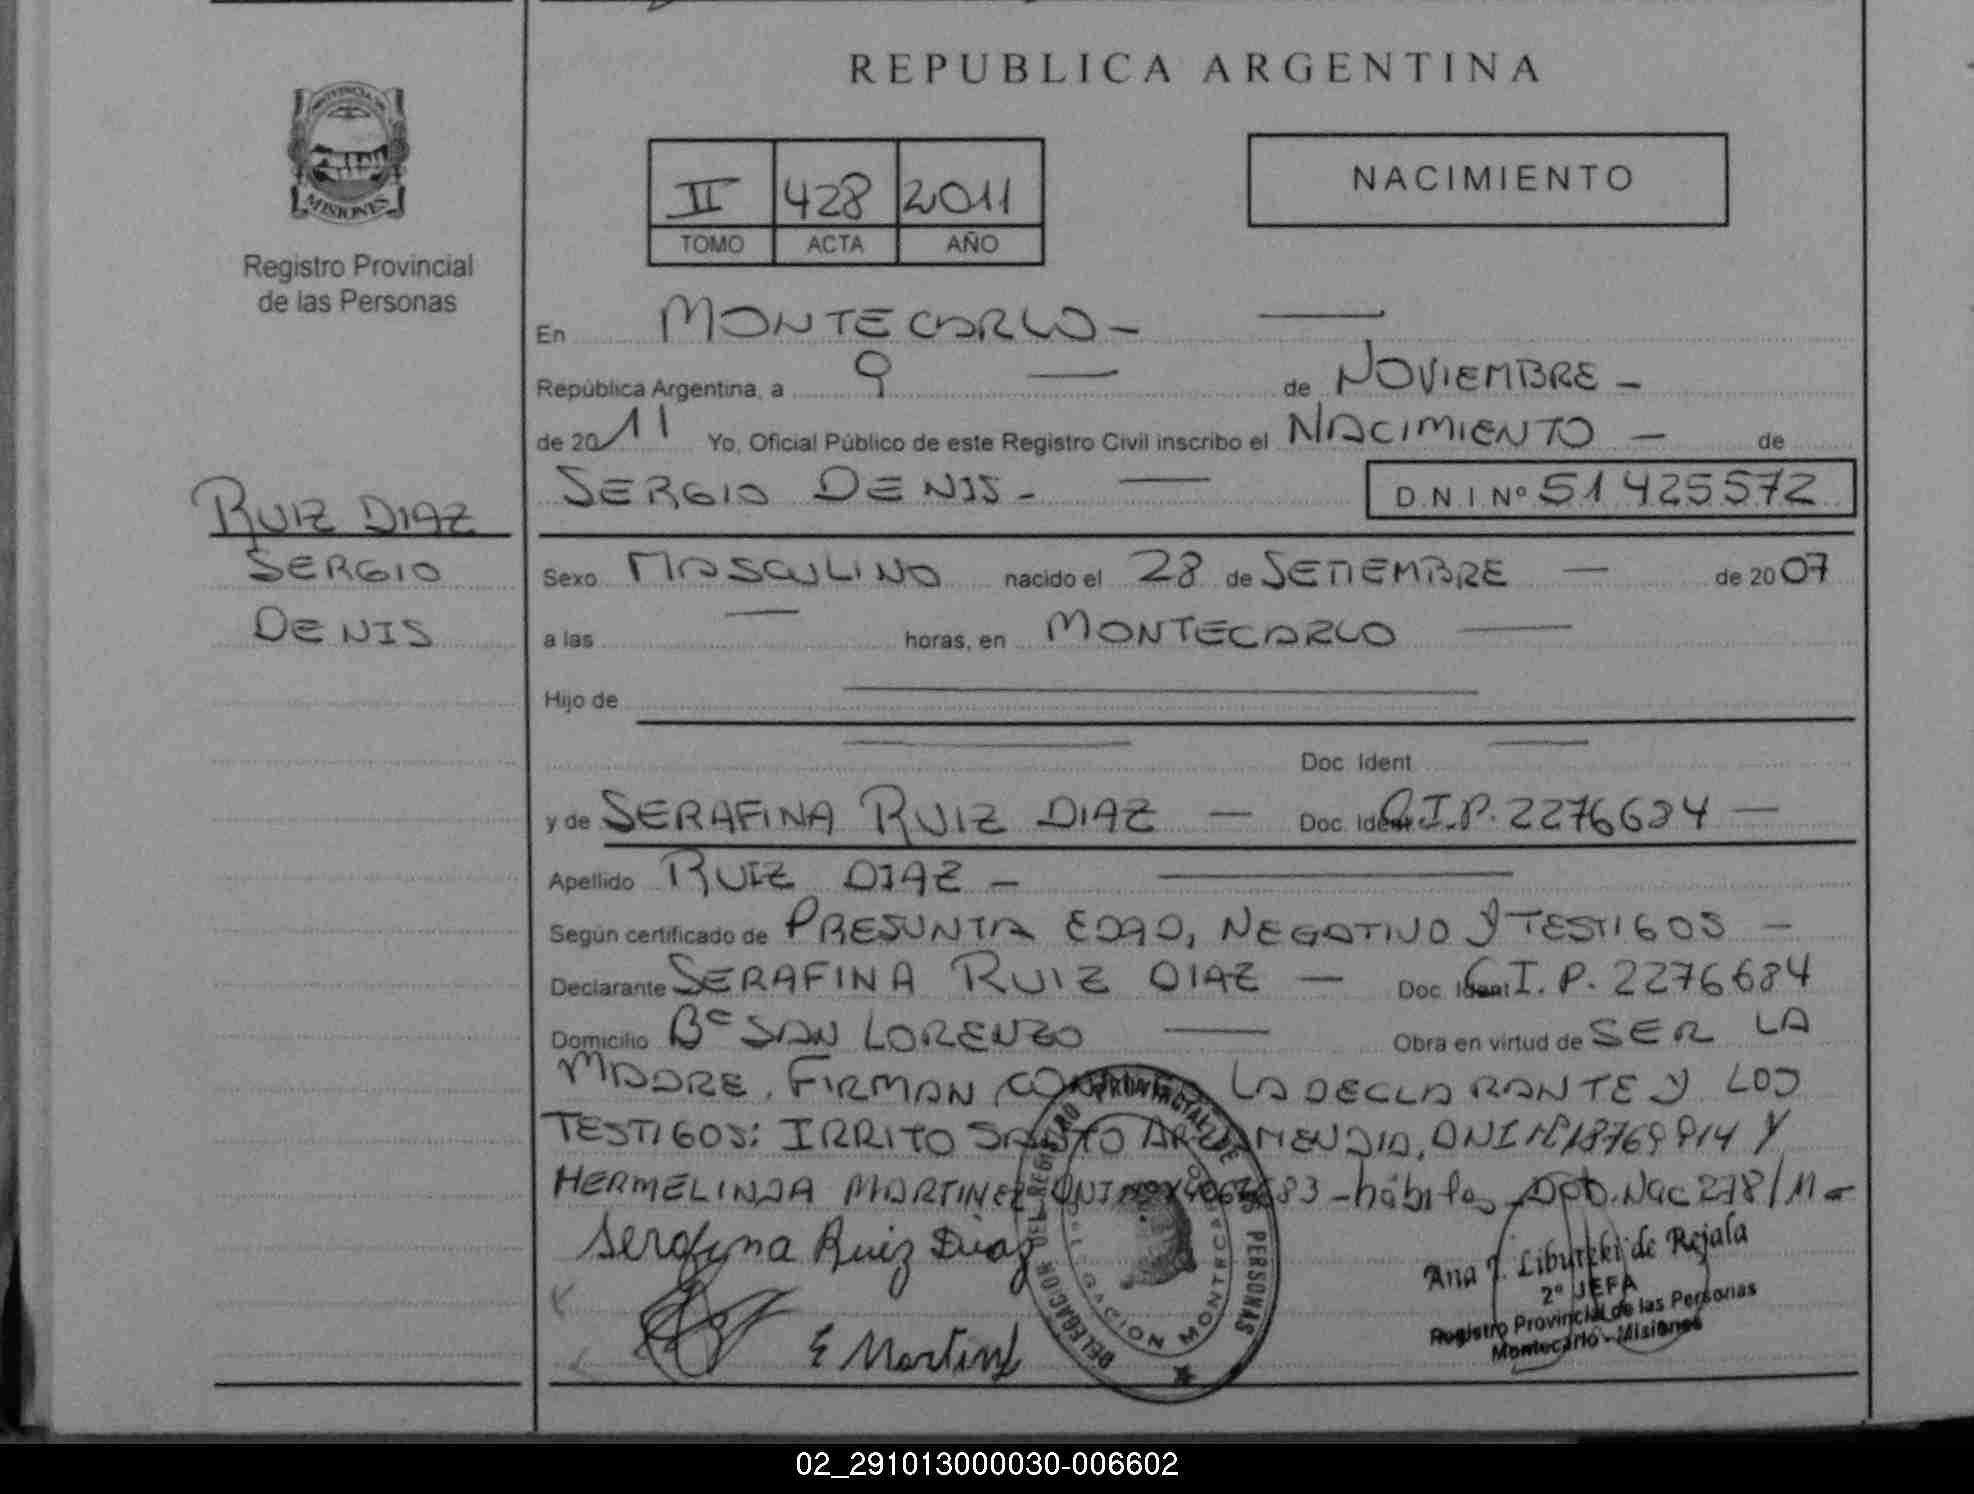 REPUBLICA ARGENTINA
PROVINCIA DE
MISIONES
Registro Provincial
de las Personas
II 428 2011
TOMO ACTA AÑO
NACIMIENTO
En MONTECARLO-
República Argentina, a 9 de NOVIEMBRE -
de 2011 Yo, Oficial Público de este Registro Civil inscribo el NACIMIENTO - de
SERGIO DENIS - D.N.I Nº 51425572
RUIZ DIAZ
SERGIO
DENIS
Sexo MASCULINO nacido el 28 de SETIEMBRE - de 2007
a las — horas, en MONTECARLO —
Hijo de —
— Doc. Ident. —
y de SERAFINA RUIZ DIAZ - Doc. Ident. C.I.P. 2276684 —
Apellido RUIZ DIAZ -
Según certificado de PRESUNTA EDAD, NEGATIVO Y TESTIGOS -
Declarante SERAFINA RUIZ DIAZ - Doc. Ident. C.I.P. 2276684
Domicilio Bº SAN LORENZO — Obra en virtud de SER LA
MADRE. FIRMAN LA DECLARANTE Y LOS
TESTIGOS: IRRITO DNI Nº 18769914 Y
HERMELINDA MARTINEZ DNI Nº - hábiles - Dpto. Nac 278/11 -
Serafina Ruiz Diaz
E Martinez
DELEGACION MONTECARLO
DEL REGISTRO PROVINCIAL DE LAS PERSONAS
Ana T. de Rejala
2º JEFA
Registro Provincial de las Personas
Montecarlo - Misiones
02_291013000030-006602